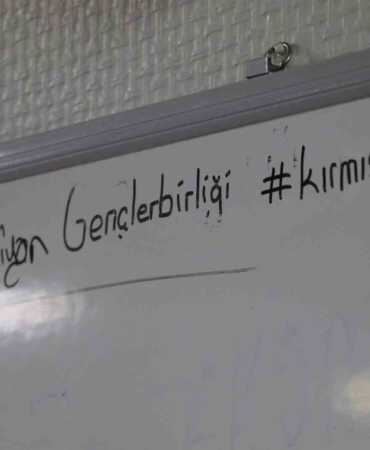 iyan Gençlerbirliği #kırmı